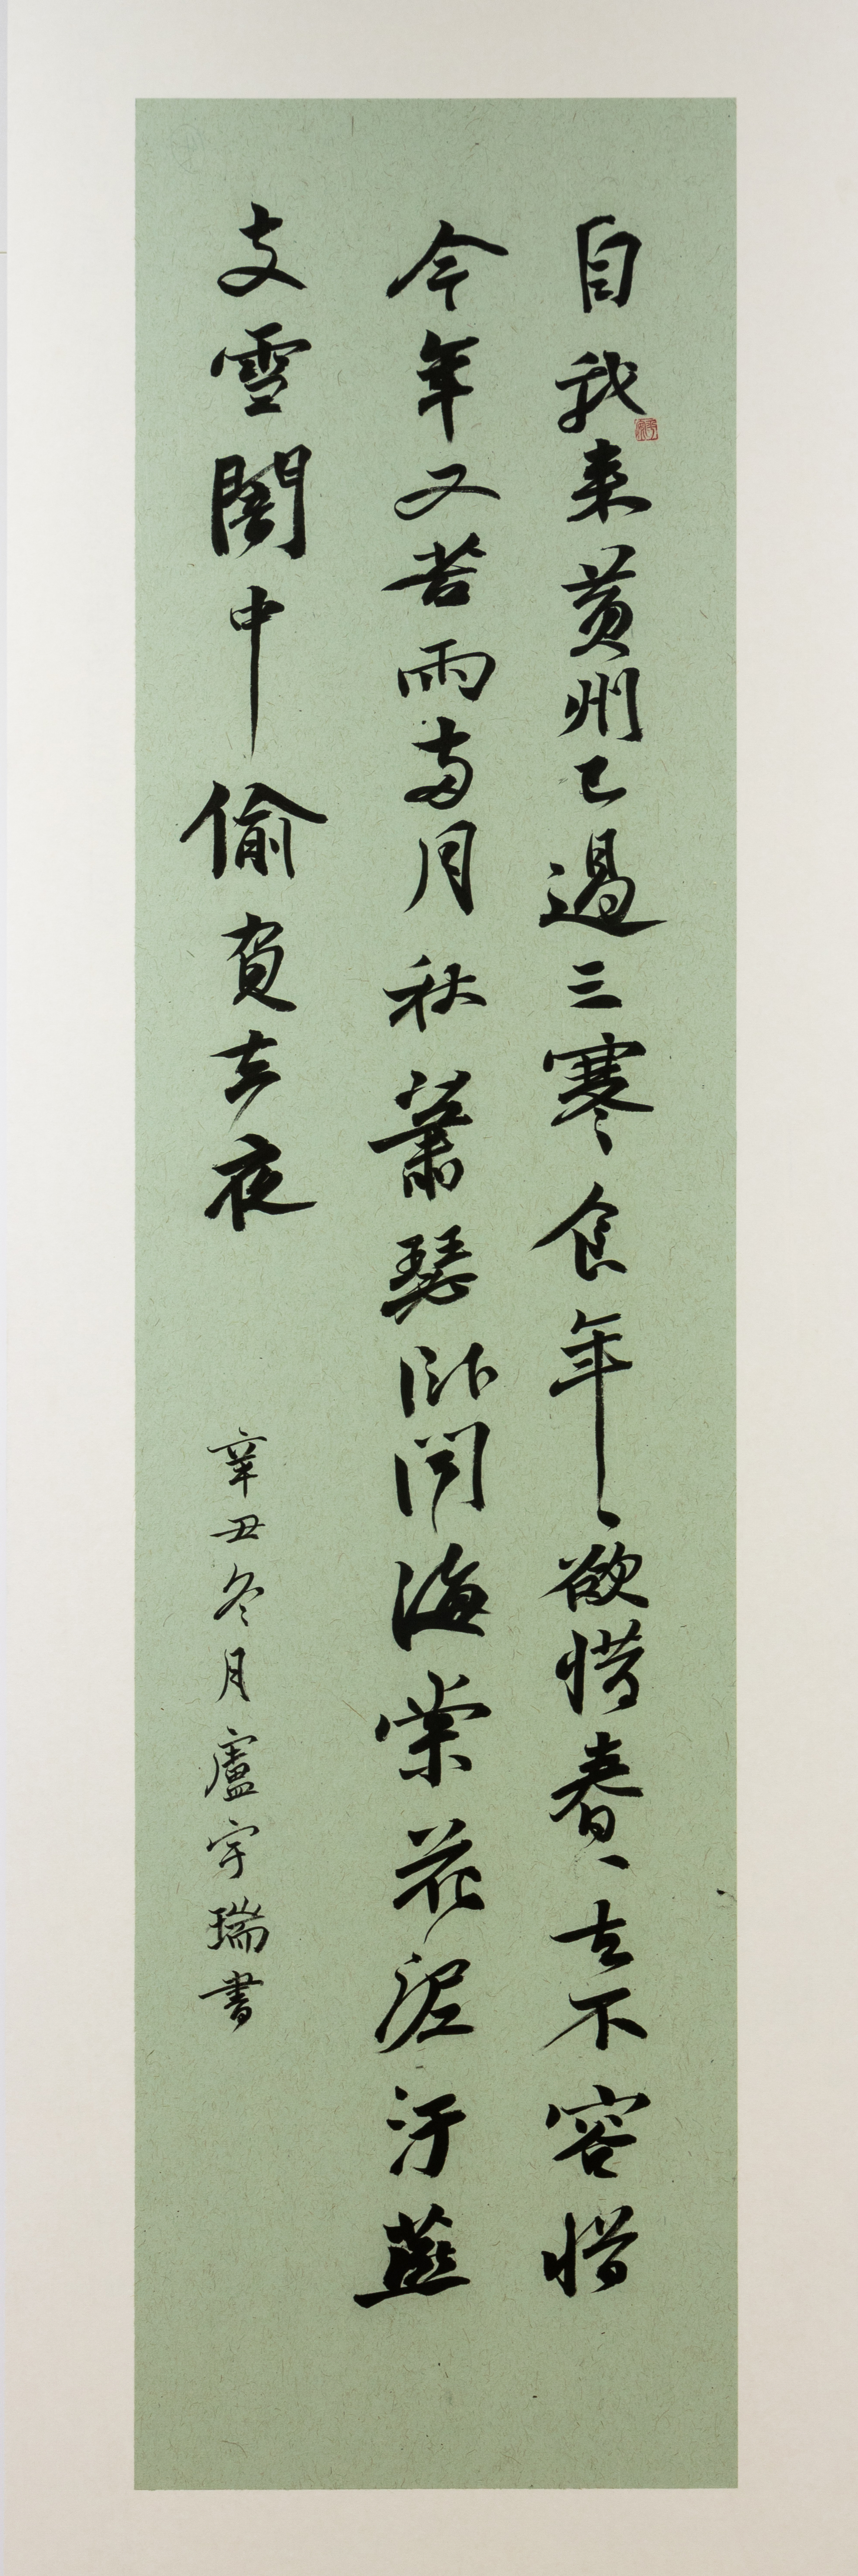 自我来黄州已過三寒食年、欲惜春、去不容惜
今年又苦雨兩月秋蕭瑟臥聞海棠花泥汙燕
支雪闇中偷負去夜
辛丑冬月盧宇瑞書